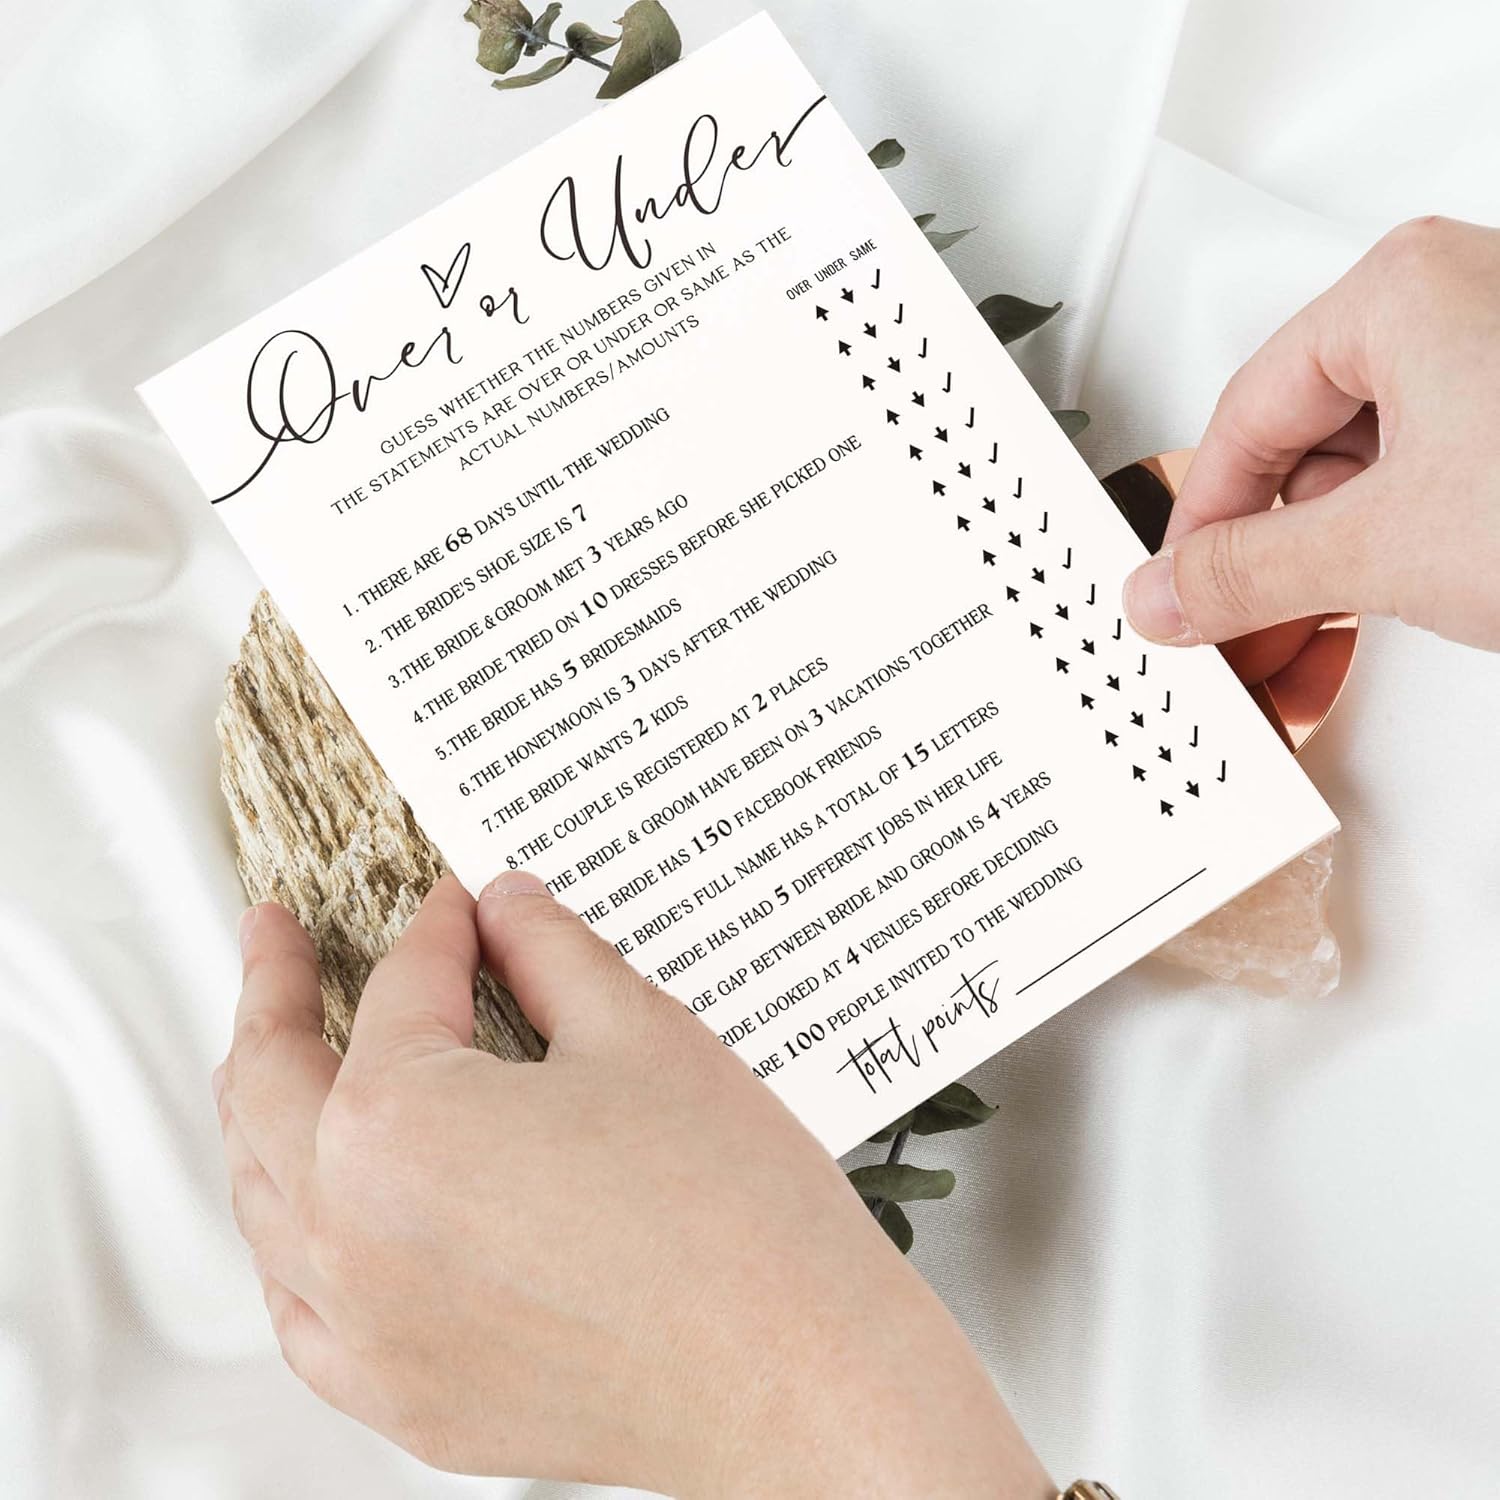 Over or Under
GUESS WHETHER THE NUMBERS GIVEN IN
THE STATEMENTS ARE OVER OR UNDER OR SAME AS THE
ACTUAL NUMBERS/AMOUNTS
OVER UNDER SAME
1. THERE ARE 68 DAYS UNTIL THE WEDDING
2. THE BRIDE'S SHOE SIZE IS 7
3.THE BRIDE & GROOM MET 3 YEARS AGO
4.THE BRIDE TRIED ON 10 DRESSES BEFORE SHE PICKED ONE
5.THE BRIDE HAS 5 BRIDESMAIDS
6.THE HONEYMOON IS 3 DAYS AFTER THE WEDDING
7.THE BRIDE WANTS 2 KIDS
8.THE COUPLE IS REGISTERED AT 2 PLACES
THE BRIDE & GROOM HAVE BEEN ON 3 VACATIONS TOGETHER
THE BRIDE HAS 150 FACEBOOK FRIENDS
BRIDE'S FULL NAME HAS A TOTAL OF 15 LETTERS
BRIDE HAS HAD 5 DIFFERENT JOBS IN HER LIFE
AGE GAP BETWEEN BRIDE AND GROOM IS 4 YEARS
LOOKED AT 4 VENUES BEFORE DECIDING
ARE 100 PEOPLE INVITED TO THE WEDDING
total points